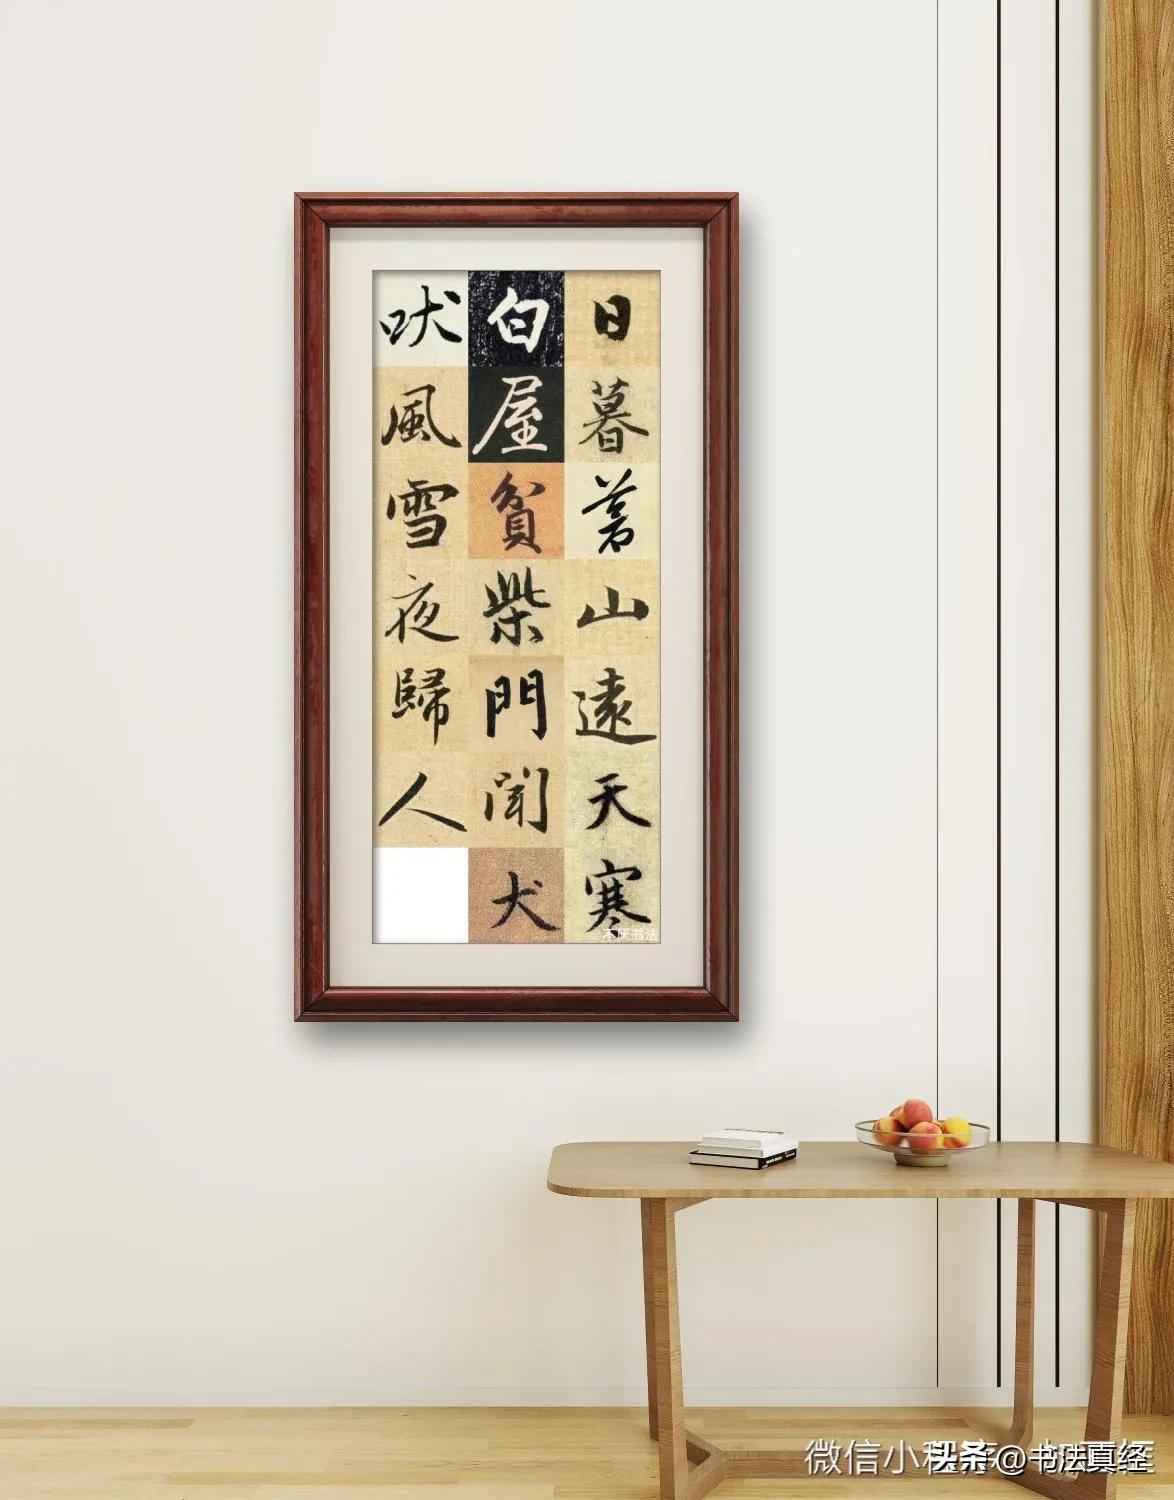 日暮蒼山遠天寒
白屋貧柴門聞犬
吠風雪夜歸人
不厌书法
微信小程序
头条@书法真经